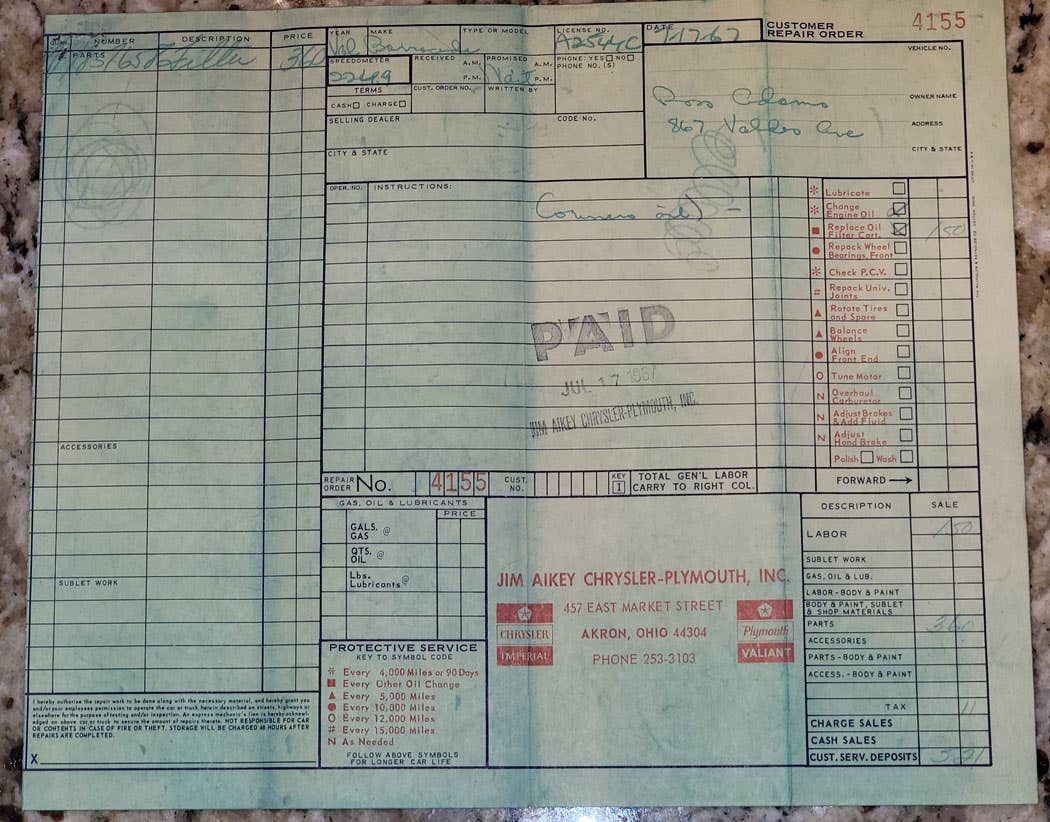 CUSTOMER
REPAIR ORDER
4155
QUAN. NUMBER DESCRIPTION PRICE
PARTS
Filter 360
YEAR MAKE TYPE OR MODEL LICENSE NO.
Val Barracuda A2544C
DATE 7-17-67
VEHICLE NO.
SPEEDOMETER RECEIVED A.M. P.M. PROMISED A.M. P.M. PHONE: YES NO
PHONE NO.(S)
22419
TERMS CUST. ORDER NO. WRITTEN BY
CASH CHARGE
SELLING DEALER CODE NO.
CITY & STATE
Ross Adams OWNER NAME
867 Valdes Ave ADDRESS
CITY & STATE
OPER. NO. INSTRUCTIONS:
oil) -
PAID
JUL 17 1967
JIM AIKEY CHRYSLER-PLYMOUTH, INC.
* Lubricate
* Change
Engine Oil
■ Replace Oil
Filter Cart. 150
● Repack Wheel
Bearings, Front
* Check P.C.V.
# Repack Univ.
Joints
▲ Rotate Tires
and Spare
▲ Balance
Wheels
● Align
Front End
O Tune Motor
N Overhaul
Carburetor
N Adjust Brakes
& Add Fluid
N Adjust
Hand Brake
Polish Wash
ACCESSORIES
SUBLET WORK
REPAIR
ORDER No. 4155 CUST.
NO. KEY
I TOTAL GEN'L LABOR
CARRY TO RIGHT COL. FORWARD →
GAS, OIL & LUBRICANTS
PRICE
GALS.
GAS @
QTS.
OIL @
Lbs.
Lubricants @
JIM AIKEY CHRYSLER-PLYMOUTH, INC.
457 EAST MARKET STREET
AKRON, OHIO 44304
PHONE 253-3103
CHRYSLER
IMPERIAL
Plymouth
VALIANT
PROTECTIVE SERVICE
KEY TO SYMBOL CODE
* Every 4,000 Miles or 90 Days
■ Every Other Oil Change
▲ Every 5,000 Miles
● Every 10,000 Miles
O Every 12,000 Miles
# Every 15,000 Miles
N As Needed
FOLLOW ABOVE SYMBOLS
FOR LONGER CAR LIFE
DESCRIPTION SALE
LABOR 150
SUBLET WORK
GAS, OIL & LUB.
LABOR - BODY & PAINT
BODY & PAINT, SUBLET
& SHOP MATERIALS
PARTS 360
ACCESSORIES
PARTS - BODY & PAINT
ACCESS. - BODY & PAINT
TAX 11
CHARGE SALES
CASH SALES
CUST. SERV. DEPOSITS 5.21
I hereby authorize the repair work to be done along with the necessary material, and hereby grant you
and/or your employees permission to operate the car or truck herein described on streets, highways or
elsewhere for the purpose of testing and/or inspection. An express mechanic's lien is hereby acknowl-
edged on above car or truck to secure the amount of repairs thereto. NOT RESPONSIBLE FOR CAR
OR CONTENTS IN CASE OF FIRE OR THEFT. STORAGE WILL BE CHARGED 48 HOURS AFTER
REPAIRS ARE COMPLETED.
X